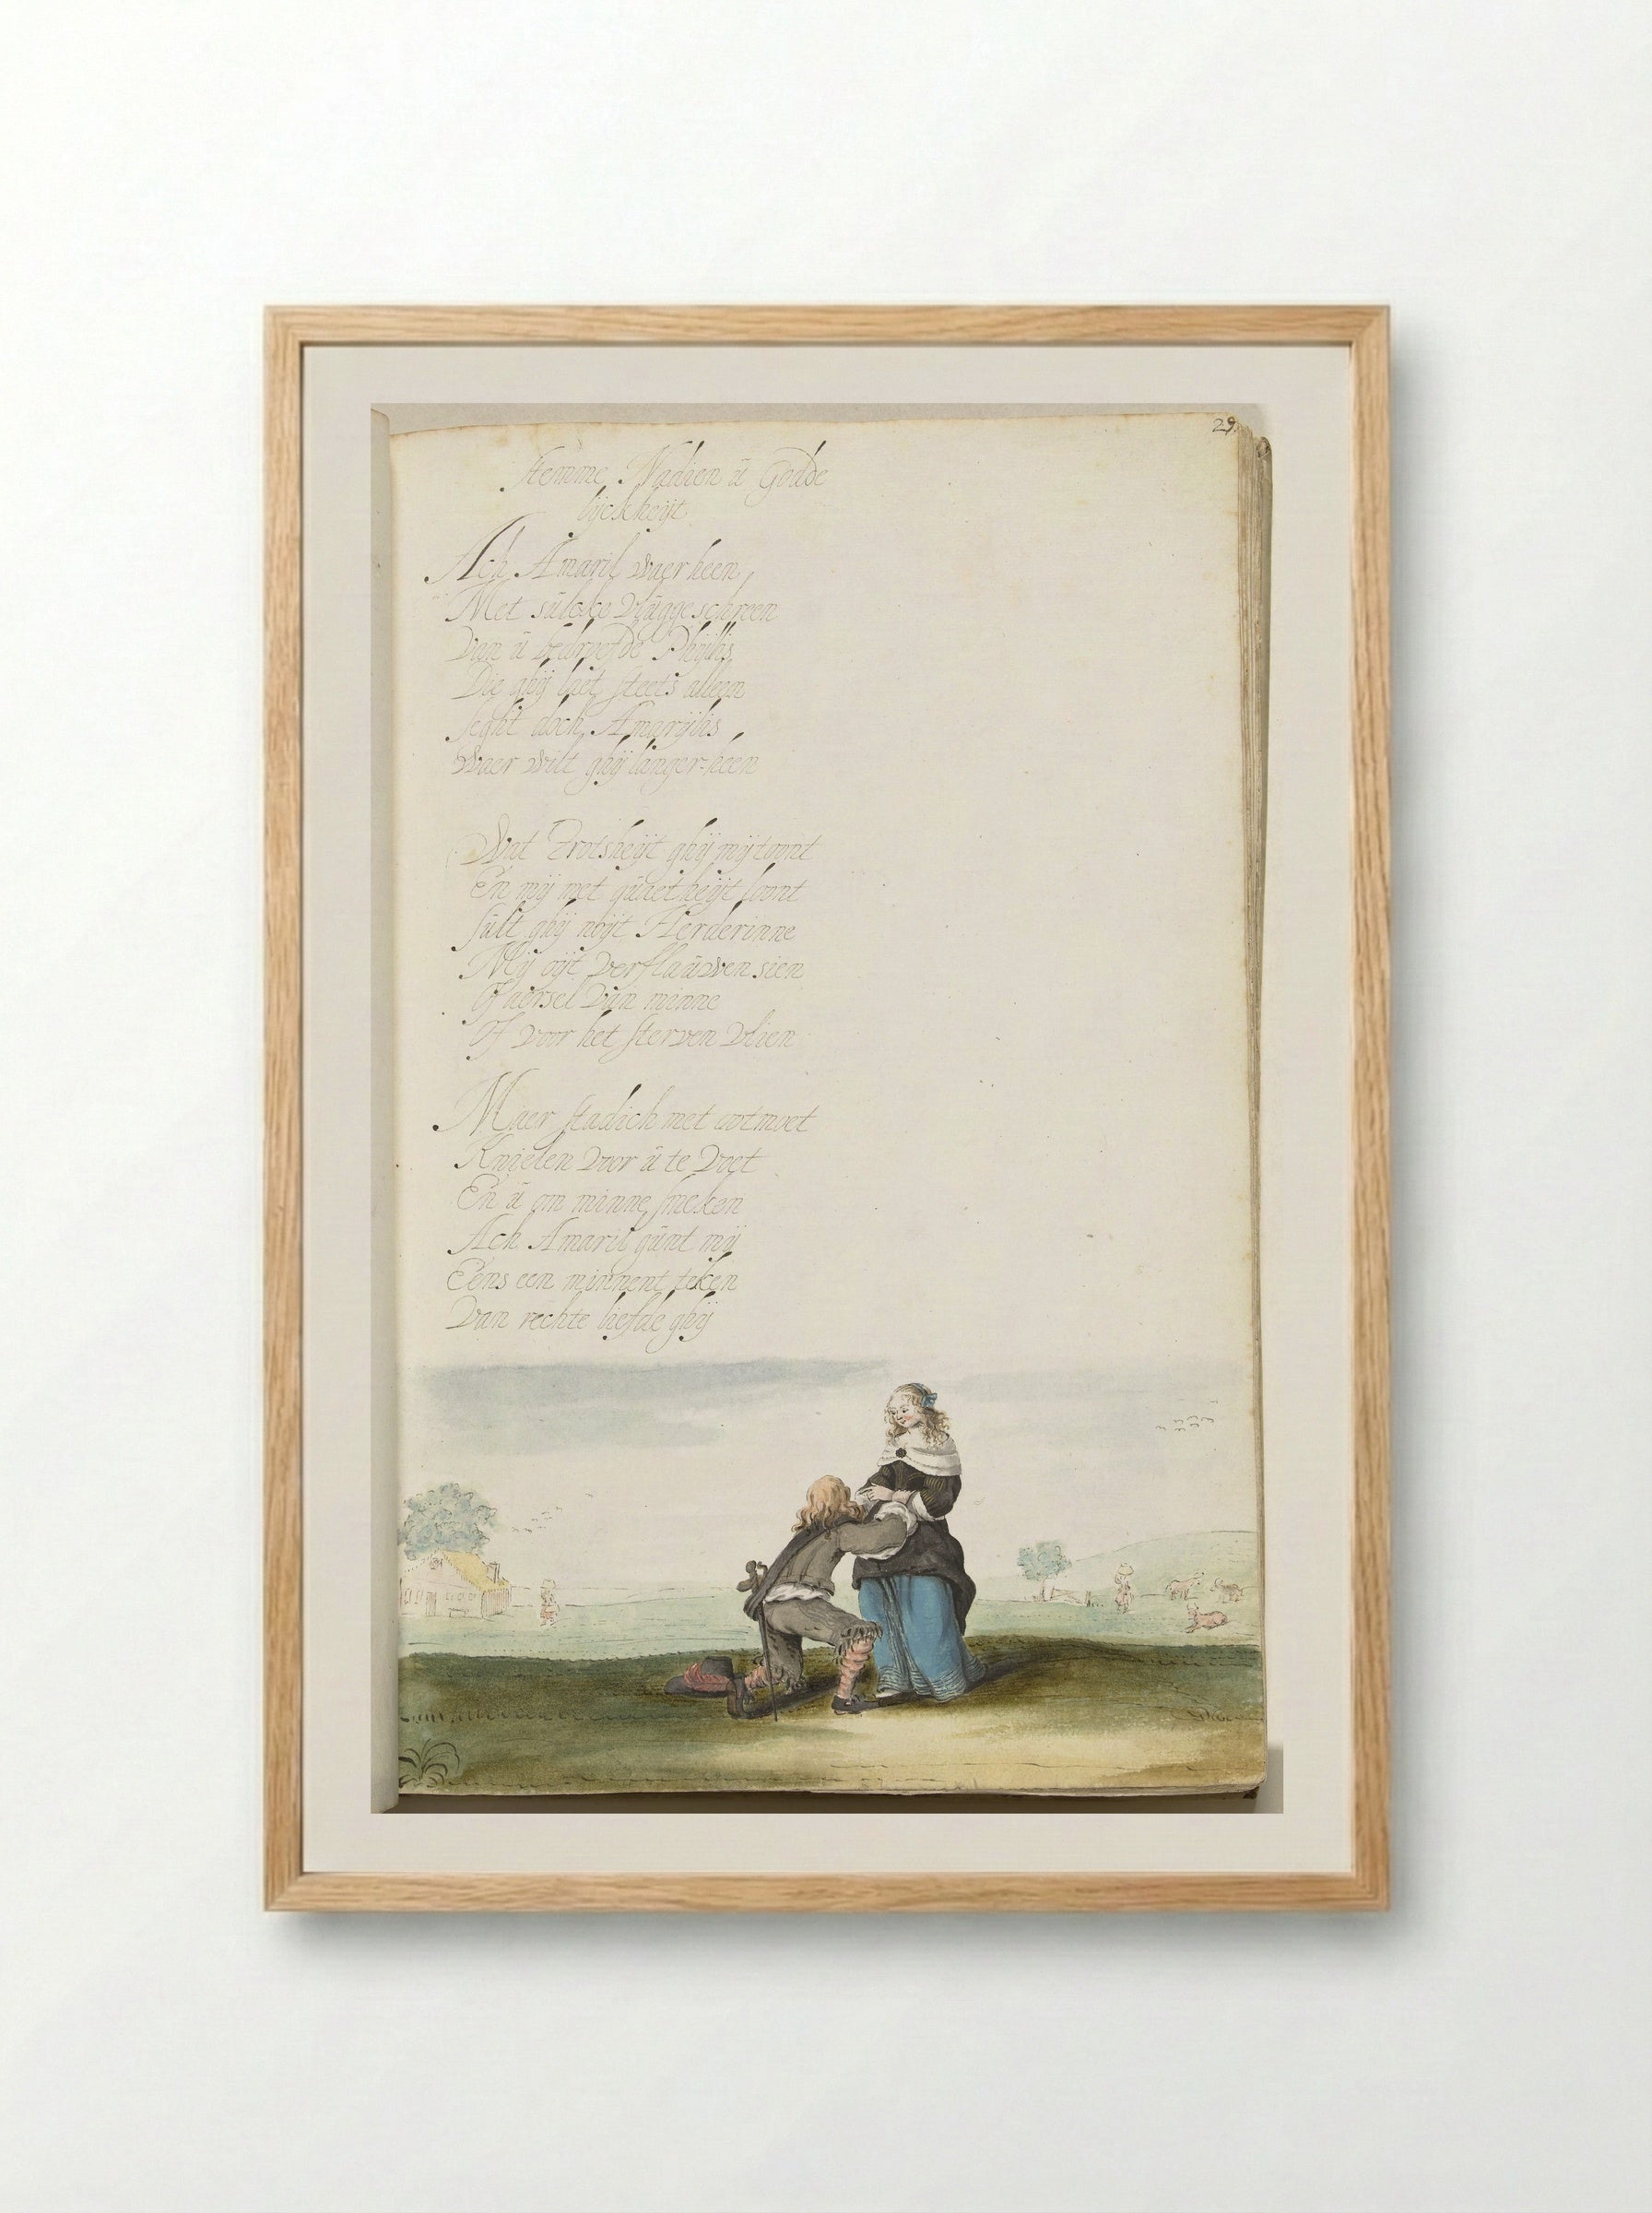 29.
Stemme Nadien ú Godde
lijckheijt
Ach Amaril waer heen
Met súlcke vlúgge schreen
Van ú bedroefde Phijllis
Die ghij laet steets alleen
Seght doch Amarijlis
Waer wilt ghij langer heen
Wat Trotsheijt ghij mij toont
En mij met qúaetheijt loont
Súlt ghij noijt Herderinne
Mij oijt verflaúwen sien
Of aersel van minne
Of voor het sterven vlien
Maer stadich met ootmoet
Knielen voor ú te voet
En ú om minne smeken
Ach Amaril gúnt mij
Eens een minnent teken
Van rechte liefde ghij